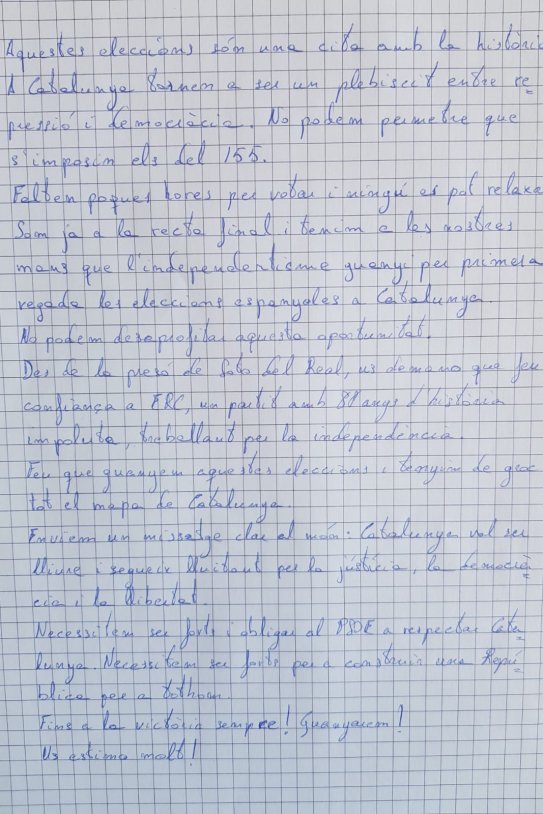 Aquestes eleccions són una cita amb la històri
A Catalunya tornem a ser un plebiscit entre re
pressió i democràcia. No podem permetre que
s'imposin els del 155.
Falten poques hores per votar i ningú es pot relaxa
Som ja a la recta final i tenim a les nostres
mans que l'independentisme guanyi per primera
vegada les eleccions espanyoles a Catalunya.
No podem desaprofitar aquesta oportunitat.
Des de la presó de Soto del Real, us demano que feu
confiança a ERC, un partit amb 88 anys d'història
impoluta, treballant per la independència.
Feu que guanyem aquestes eleccions i tenyim de groc
tot el mapa de Catalunya.
Enviem un missatge clar al món: Catalunya vol ser
lliure i segueix lluitant per la justícia, la democrà
cia i la llibertat.
Necessitem ser forts i obligar al PSOE a respectar Cata
lunya. Necessitem ser forts per a construir una Repú
blica per a tothom.
Fins a la victòria sempre! Guanyarem!
Us estimo molt!